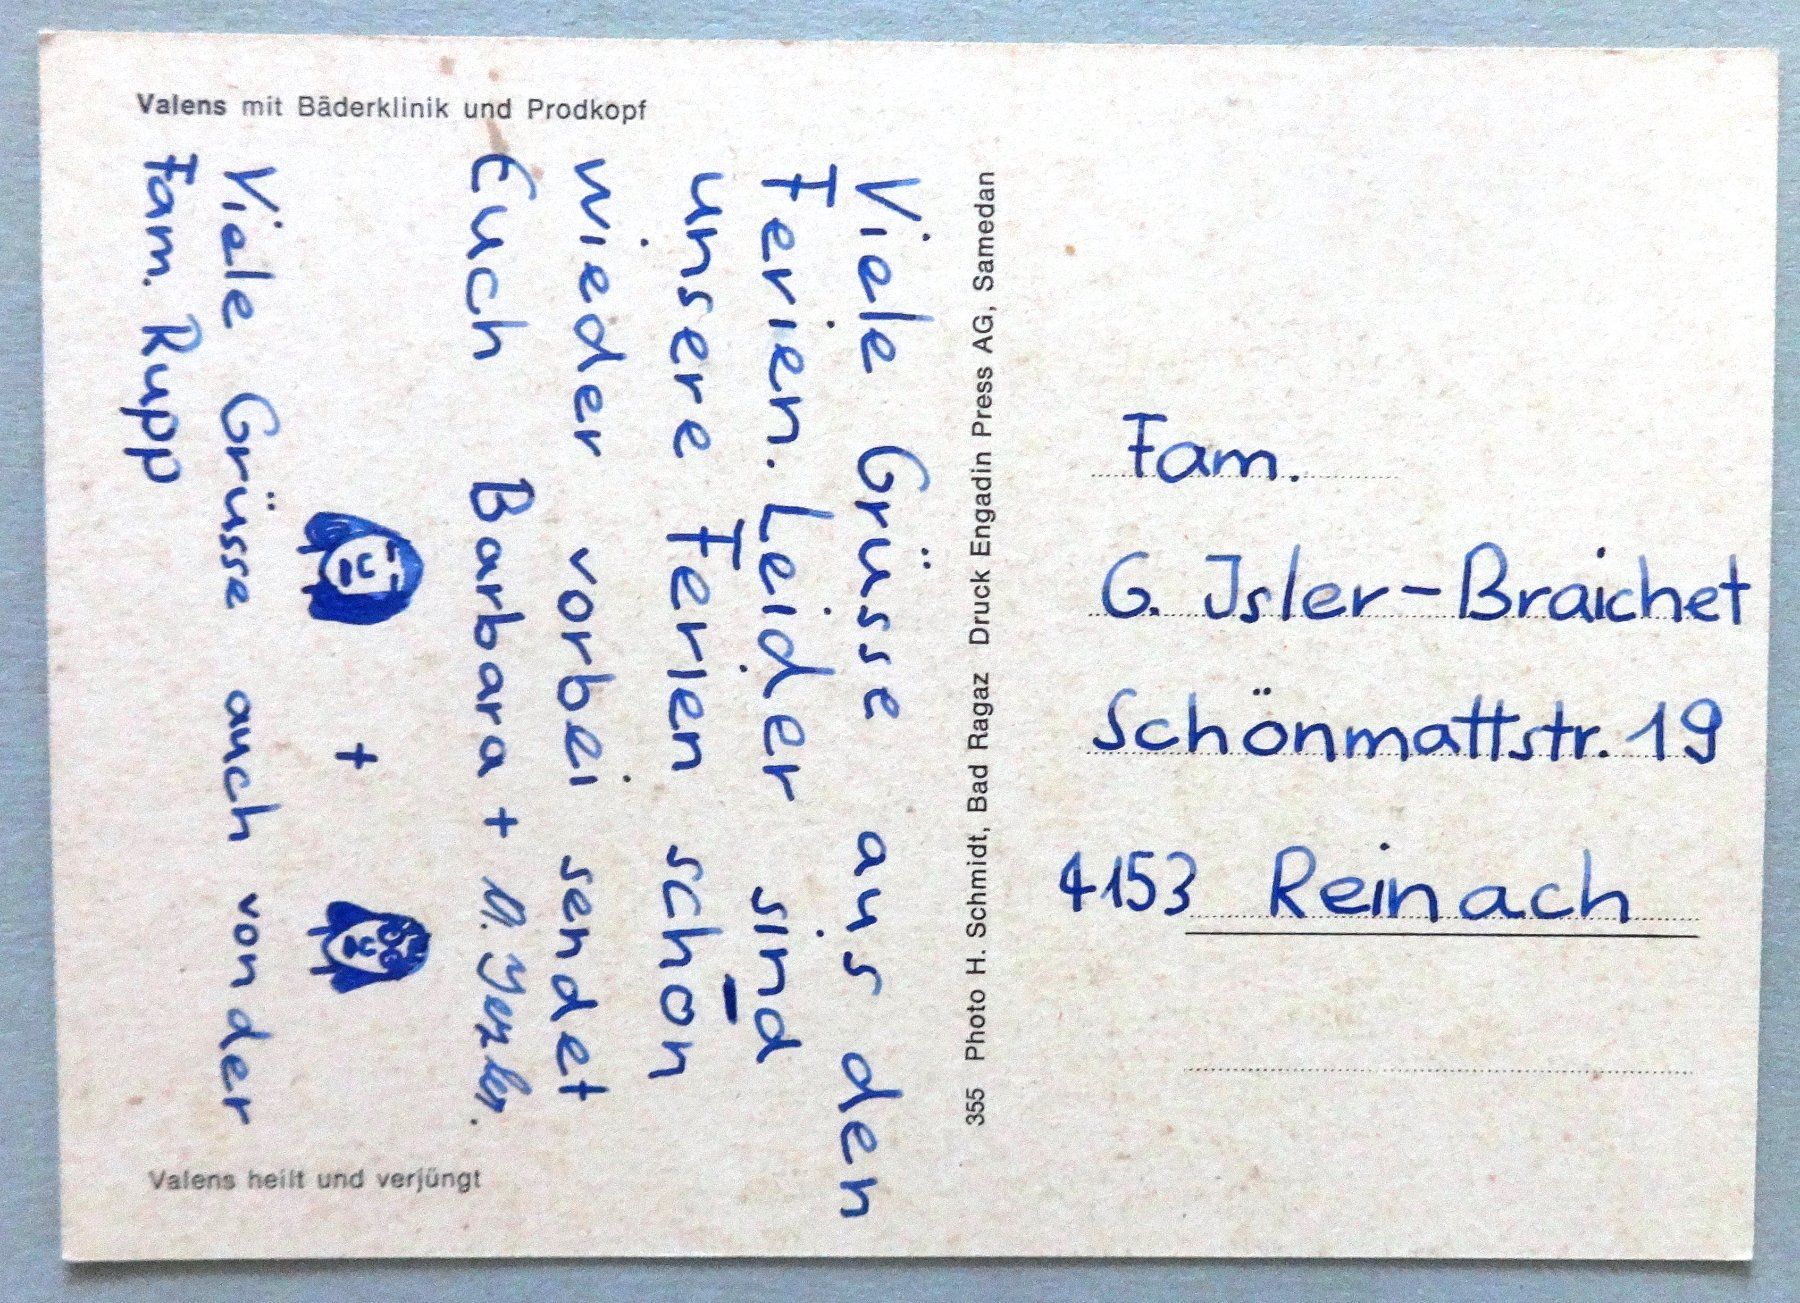 Valens mit Bäderklinik und Prodkopf
Viele Grüsse aus den
Ferien. Leider sind
unsere Ferien schon
wieder vorbei sendet
Euch Barbara +
+
Viele Grüsse auch von der
Fam. Rupp
Valens heilt und verjüngt
355 Photo H. Schmidt, Bad Ragaz Druck Engadin Press AG, Samedan
Fam.
G. Isler-Braichet
Schönmattstr. 19
4153 Reinach